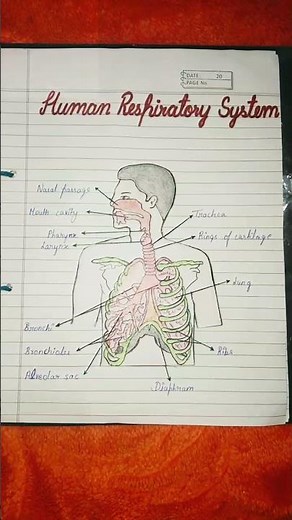 DATE: 20
PAGE No.
Human Respiratory System
Nasal passage
Mouth cavity
Pharynx
Larynx
Trachea
Rings of cartilage
Lung
Bronchi
Bronchioles
Alveolar sac
Ribs
Diaphram